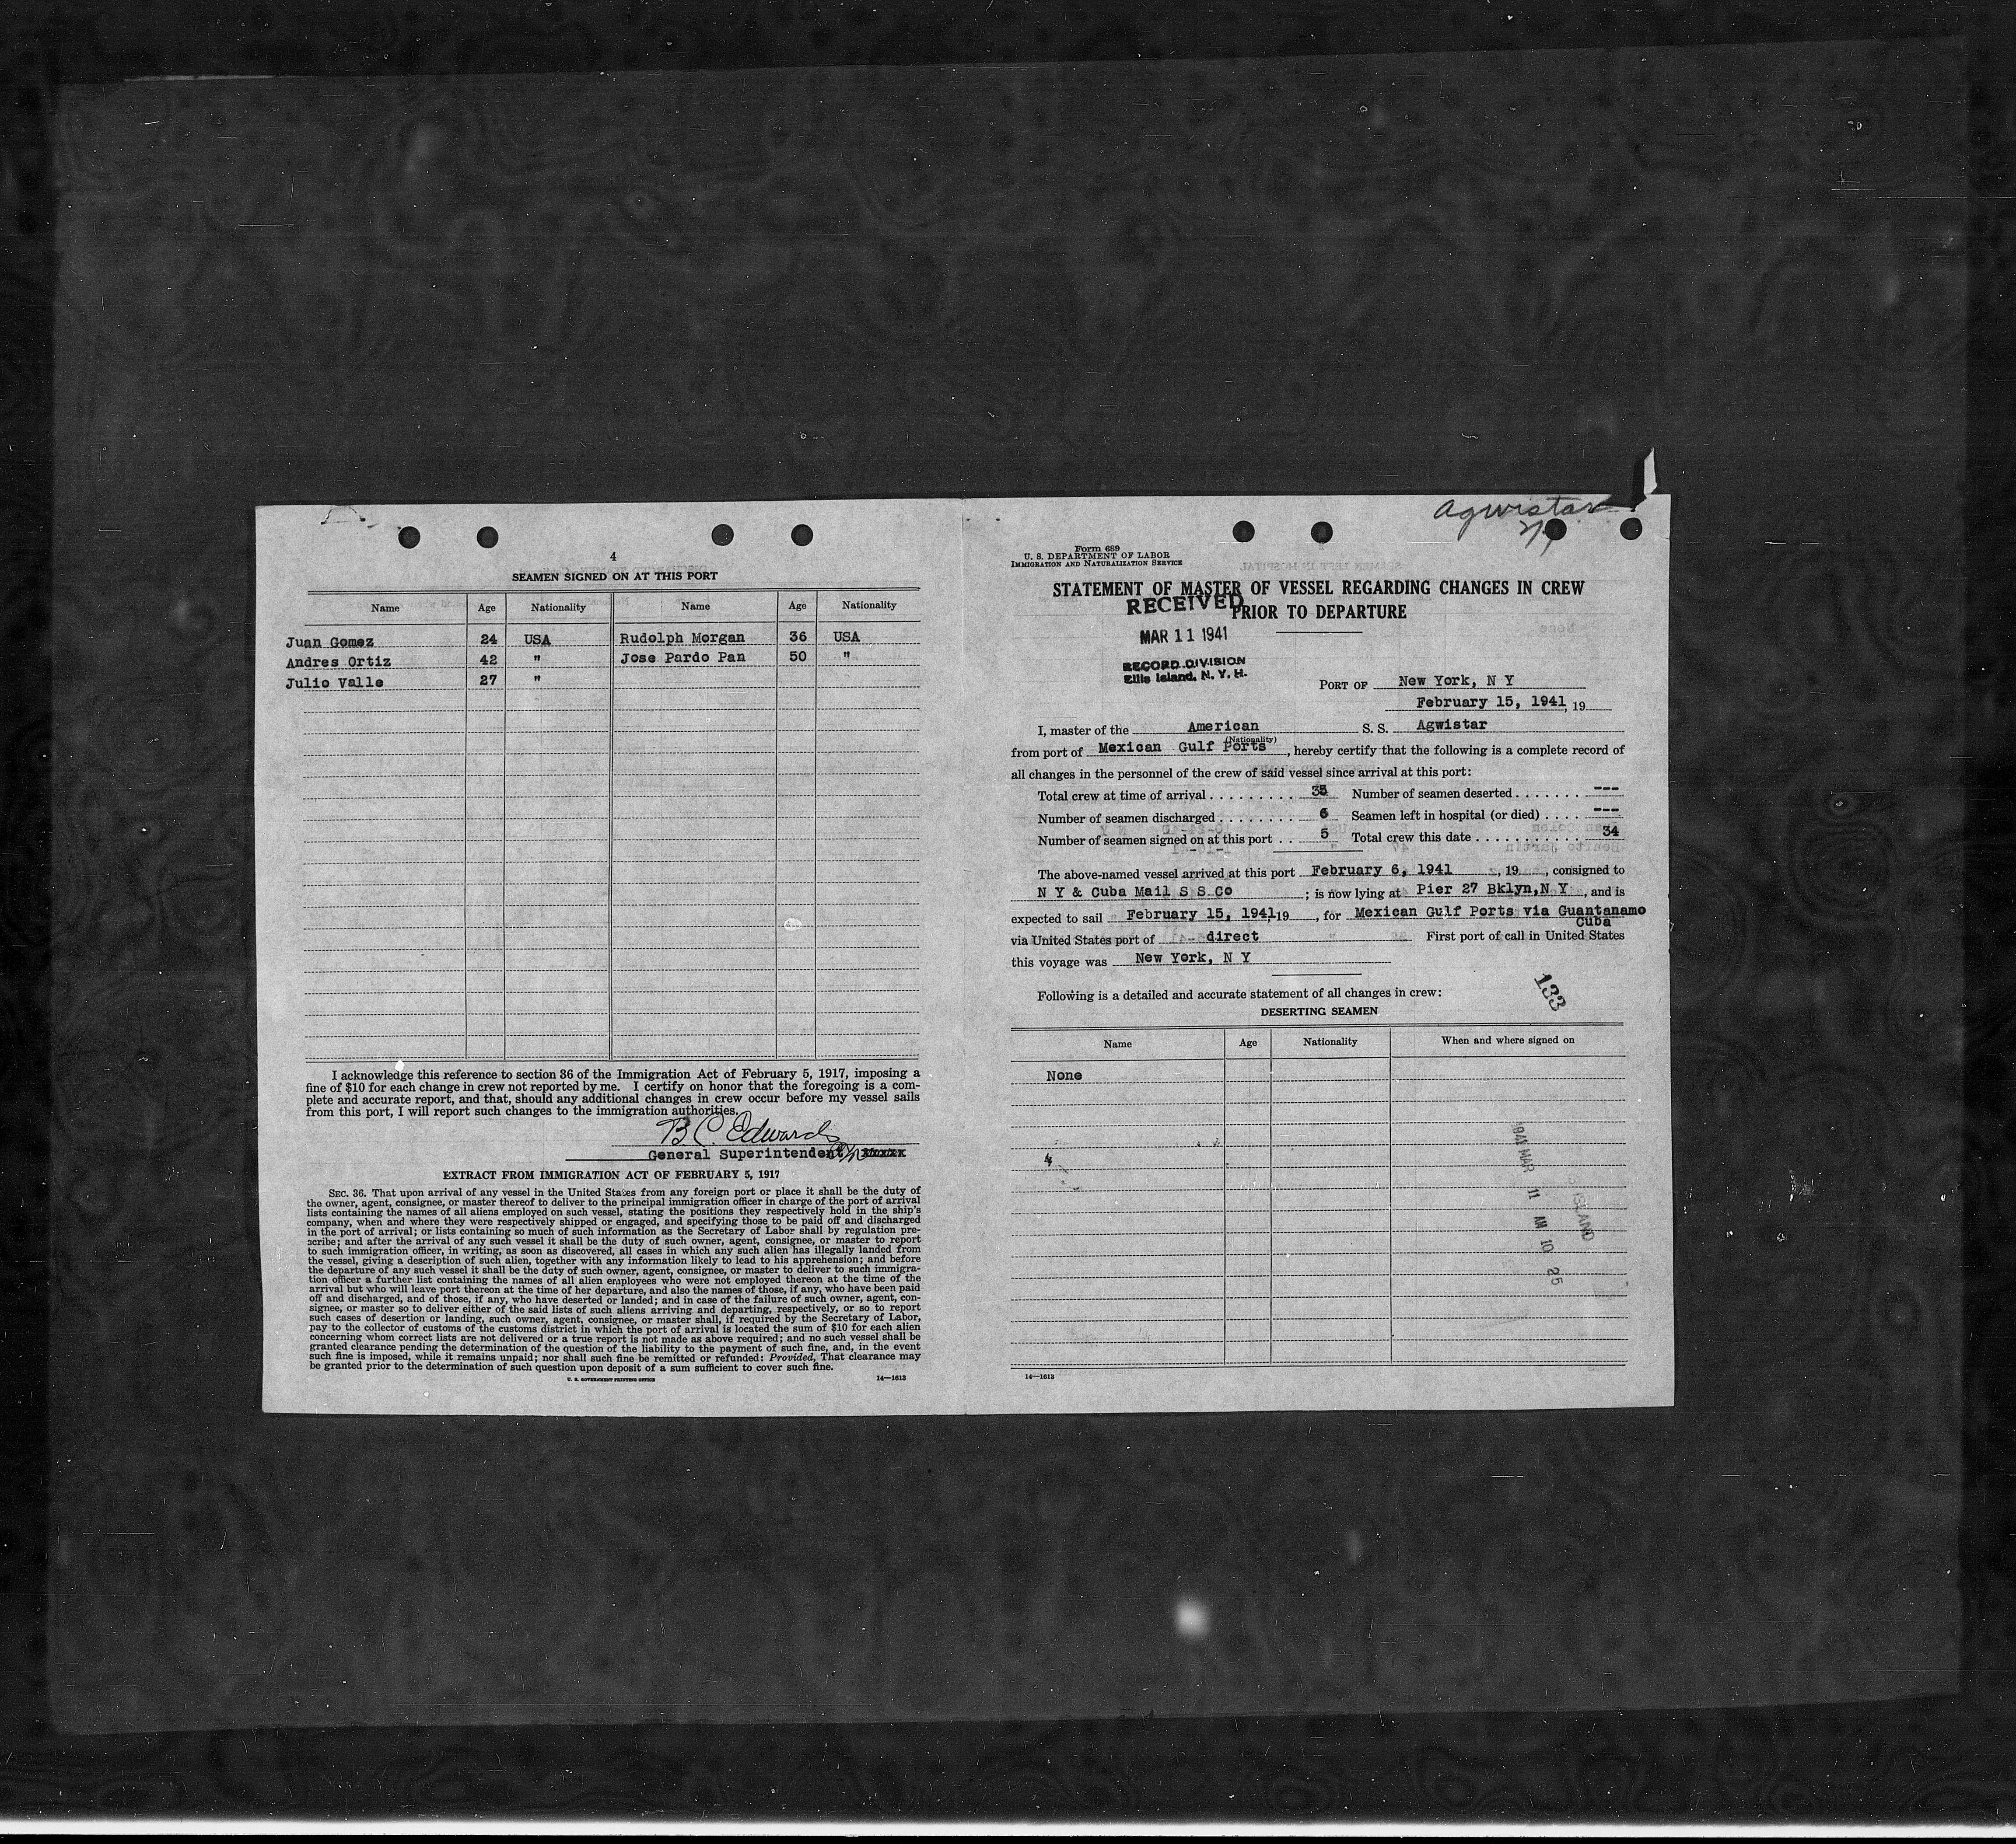 4
SEAMEN SIGNED ON AT THIS PORT
Name Age Nationality Name Age Nationality
Juan Gomez 24 USA Rudolph Morgan 36 USA
Andres Ortiz 42 " Jose Pardo Pan 50 "
Julio Valle 27 "
I acknowledge this reference to section 36 of the Immigration Act of February 5, 1917, imposing a
fine of $10 for each change in crew not reported by me. I certify on honor that the foregoing is a com-
plete and accurate report, and that, should any additional changes in crew occur before my vessel sails
from this port, I will report such changes to the immigration authorities.
B C. Edwards
General Superintendent
EXTRACT FROM IMMIGRATION ACT OF FEBRUARY 5, 1917
SEC. 36. That upon arrival of any vessel in the United States from any foreign port or place it shall be the duty of
the owner, agent, consignee, or master thereof to deliver to the principal immigration officer in charge of the port of arrival
lists containing the names of all aliens employed on such vessel, stating the positions they respectively hold in the ship's
company, when and where they were respectively shipped or engaged, and specifying those to be paid off and discharged
in the port of arrival; or lists containing so much of such information as the Secretary of Labor shall by regulation pre-
scribe; and after the arrival of any such vessel it shall be the duty of such owner, agent, consignee, or master to report
to such immigration officer, in writing, as soon as discovered, all cases in which any such alien has illegally landed from
the vessel, giving a description of such alien, together with any information likely to lead to his apprehension; and before
the departure of any such vessel it shall be the duty of such owner, agent, consignee, or master to deliver to such immigra-
tion officer a further list containing the names of all alien employees who were not employed thereon at the time of the
arrival but who will leave port thereon at the time of her departure, and also the names of those, if any, who have been paid
off and discharged, and of those, if any, who have deserted or landed; and in case of the failure of such owner, agent, con-
signee, or master so to deliver either of the said lists of such aliens arriving and departing, respectively, or so to report
such cases of desertion or landing, such owner, agent, consignee, or master shall, if required by the Secretary of Labor,
pay to the collector of customs of the customs district in which the port of arrival is located the sum of $10 for each alien
concerning whom correct lists are not delivered or a true report is not made as above required; and no such vessel shall be
granted clearance pending the determination of the question of the liability to the payment of such fine, and, in the event
such fine is imposed, while it remains unpaid; nor shall such fine be remitted or refunded: Provided, That clearance may
be granted prior to the determination of such question upon deposit of a sum sufficient to cover such fine.
U. S. GOVERNMENT PRINTING OFFICE 14—1613
Agwistar
Form 689
U. S. DEPARTMENT OF LABOR
IMMIGRATION AND NATURALIZATION SERVICE
STATEMENT OF MASTER OF VESSEL REGARDING CHANGES IN CREW
PRIOR TO DEPARTURE
RECEIVED
MAR 11 1941
RECORD DIVISION
Ellis Island, N. Y. H.
PORT OF New York, N Y
February 15, 1941, 19
I, master of the American S. S. Agwistar
(Nationality)
from port of Mexican Gulf Ports, hereby certify that the following is a complete record of
all changes in the personnel of the crew of said vessel since arrival at this port:
Total crew at time of arrival . . . . . . . . . 35 Number of seamen deserted . . . . . . . ---
Number of seamen discharged . . . . . . . . 6 Seamen left in hospital (or died) . . . . ---
Number of seamen signed on at this port . . 5 Total crew this date . . . . . . . . . . . 34
The above-named vessel arrived at this port February 6, 1941, 19 , consigned to
N Y & Cuba Mail S S Co ; is now lying at Pier 27 Bklyn, N Y , and is
expected to sail February 15, 1941, 19 , for Mexican Gulf Ports via Guantanamo
Cuba
via United States port of direct First port of call in United States
this voyage was New York, N Y
133
Following is a detailed and accurate statement of all changes in crew:
DESERTING SEAMEN
Name Age Nationality When and where signed on
None
4
1941 MAR 11 AM 10 25
ISLAND
14—1613